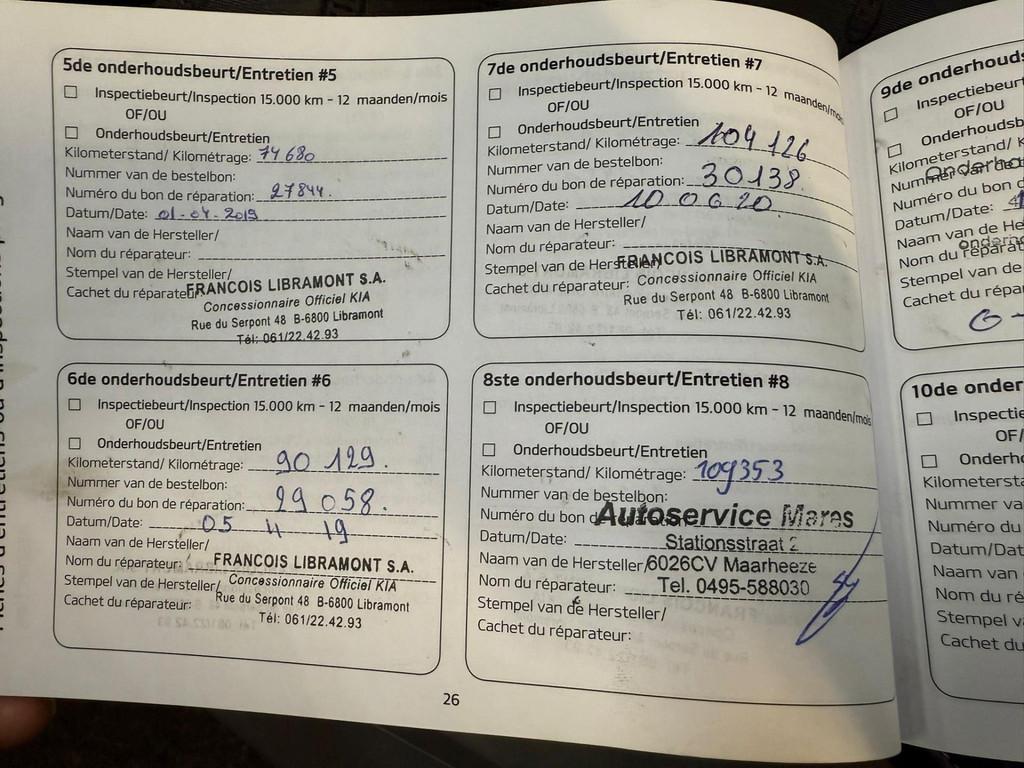 5de onderhoudsbeurt/Entretien #5
Inspectiebeurt/Inspection 15.000 km - 12 maanden/mois
OF/OU
Onderhoudsbeurt/Entretien
Kilometerstand/ Kilométrage: 74 680
Nummer van de bestelbon:
Numéro du bon de réparation: 27844.
Datum/Date: 01-04-2019
Naam van de Hersteller/
Nom du réparateur:
Stempel van de Hersteller/
Cachet du réparateur:
FRANCOIS LIBRAMONT S.A.
Concessionnaire Officiel KIA
Rue du Serpont 48 B-6800 Libramont
Tél: 061/22.42.93
6de onderhoudsbeurt/Entretien #6
Inspectiebeurt/Inspection 15.000 km - 12 maanden/mois
OF/OU
Onderhoudsbeurt/Entretien
Kilometerstand/ Kilométrage: 90 129.
Nummer van de bestelbon:
Numéro du bon de réparation: 29 058.
Datum/Date: 05 4 19
Naam van de Hersteller/
Nom du réparateur:
Stempel van de Hersteller/
Cachet du réparateur:
FRANCOIS LIBRAMONT S.A.
Concessionnaire Officiel KIA
Rue du Serpont 48 B-6800 Libramont
Tél: 061/22.42.93
7de onderhoudsbeurt/Entretien #7
Inspectiebeurt/Inspection 15.000 km - 12 maanden/mois
OF/OU
Onderhoudsbeurt/Entretien
Kilometerstand/ Kilométrage: 104 126
Nummer van de bestelbon:
Numéro du bon de réparation: 30138.
Datum/Date: 10 06 20
Naam van de Hersteller/
Nom du réparateur:
Stempel van de Hersteller/
Cachet du réparateur:
FRANCOIS LIBRAMONT S.A.
Concessionnaire Officiel KIA
Rue du Serpont 48 B-6800 Libramont
Tél: 061/22.42.93
8ste onderhoudsbeurt/Entretien #8
Inspectiebeurt/Inspection 15.000 km - 12 maanden/mois
OF/OU
Onderhoudsbeurt/Entretien
Kilometerstand/ Kilométrage: 109353
Nummer van de bestelbon:
Numéro du bon de réparation:
Datum/Date:
Naam van de Hersteller/
Nom du réparateur:
Stempel van de Hersteller/
Cachet du réparateur:
Autoservice Mares
Stationsstraat 2
6026CV Maarheeze
Tel. 0495-588030
26
9de onderhouds
Inspectiebeur
OF/OU
Onderhoudsb
Kilometerstand/ K
Nummer van de
Numéro du bon d
Datum/Date:
Naam van de He
Nom du répara
Stempel van de
Cachet du répa
10de onder
Inspectie
OF/
Onderh
Kilometersta
Nummer va
Numéro du
Datum/Dat
Naam van
Nom du ré
Stempel v
Cachet du